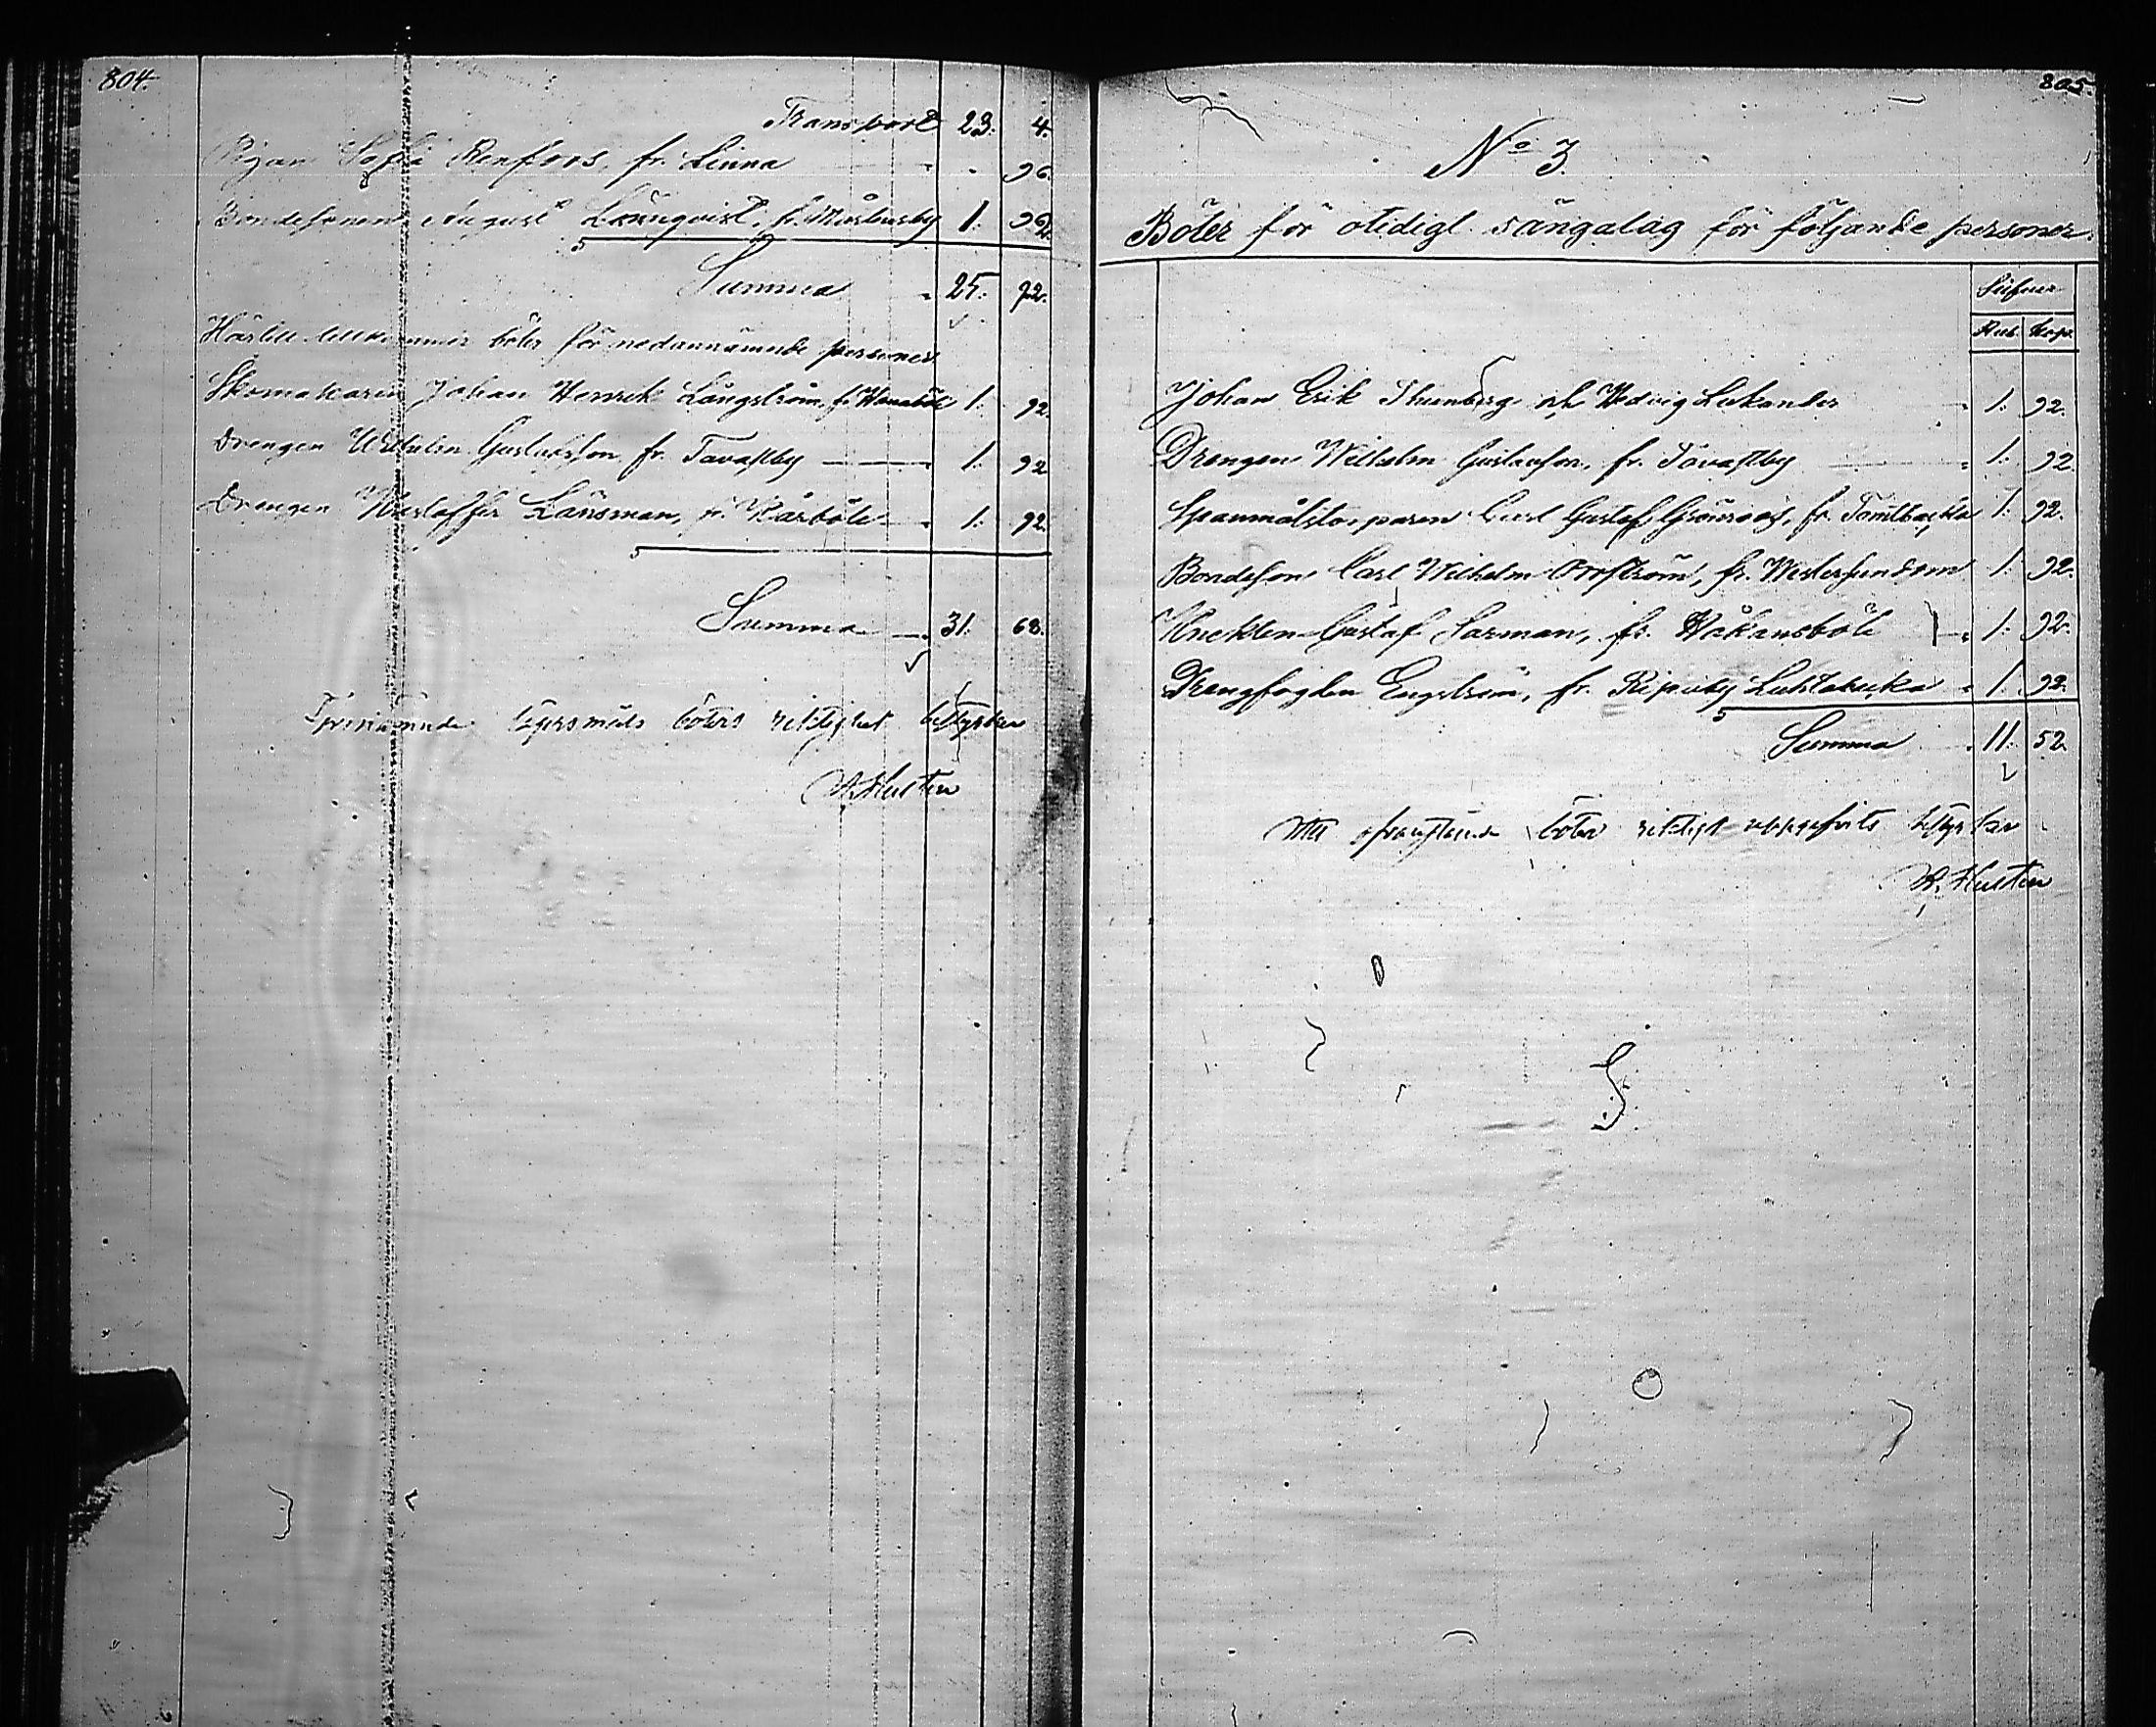 804.
Transport 23: 4.
Pigan Sofia Renfors, fr. Linna " - 96.
Bondesonen August Lönnqvist, fr. Mårtensby 1: 92.
Summa " 25: 92.
Härtill tillkommer böter för nedannämnde personer
Skomakaren Johan Henrik Långström, fr. Hanaböle 1: 92
Drengen Wilhelm Gustafsson fr. Tavastby " 1: 92
Drengen Kristoffer Länsman, fr. Kårböle " 1: 92.
Summa " 31: 68.
lägersmåls böters riktighet bestyrker
Hultin
805.
No 3.
Böter för otidigt sängalag för följande personer.
Silfver
Rub. Kop.
Johan Erik Thunberg och Hedvig Lukander " 1: 92.
Drengen Wilhelm Gustafson, fr. Tavastby " 1: 92.
Spanmålstorparen Carl Gustaf Grönroos, fr. Tomtbacka 1: 92.
Bondeson Carl Wilhelm Orrström, fr. Westersundom 1: 92.
Knekten Gustaf Sarman, fr. Håkansböle " 1: 92.
Drengfogden Engström, fr. Ripuby Luhtabacka " 1: 92.
Summa " 11: 52.
Att ofvanstående böter riktigt uppgifvits bestyrker
Hultin